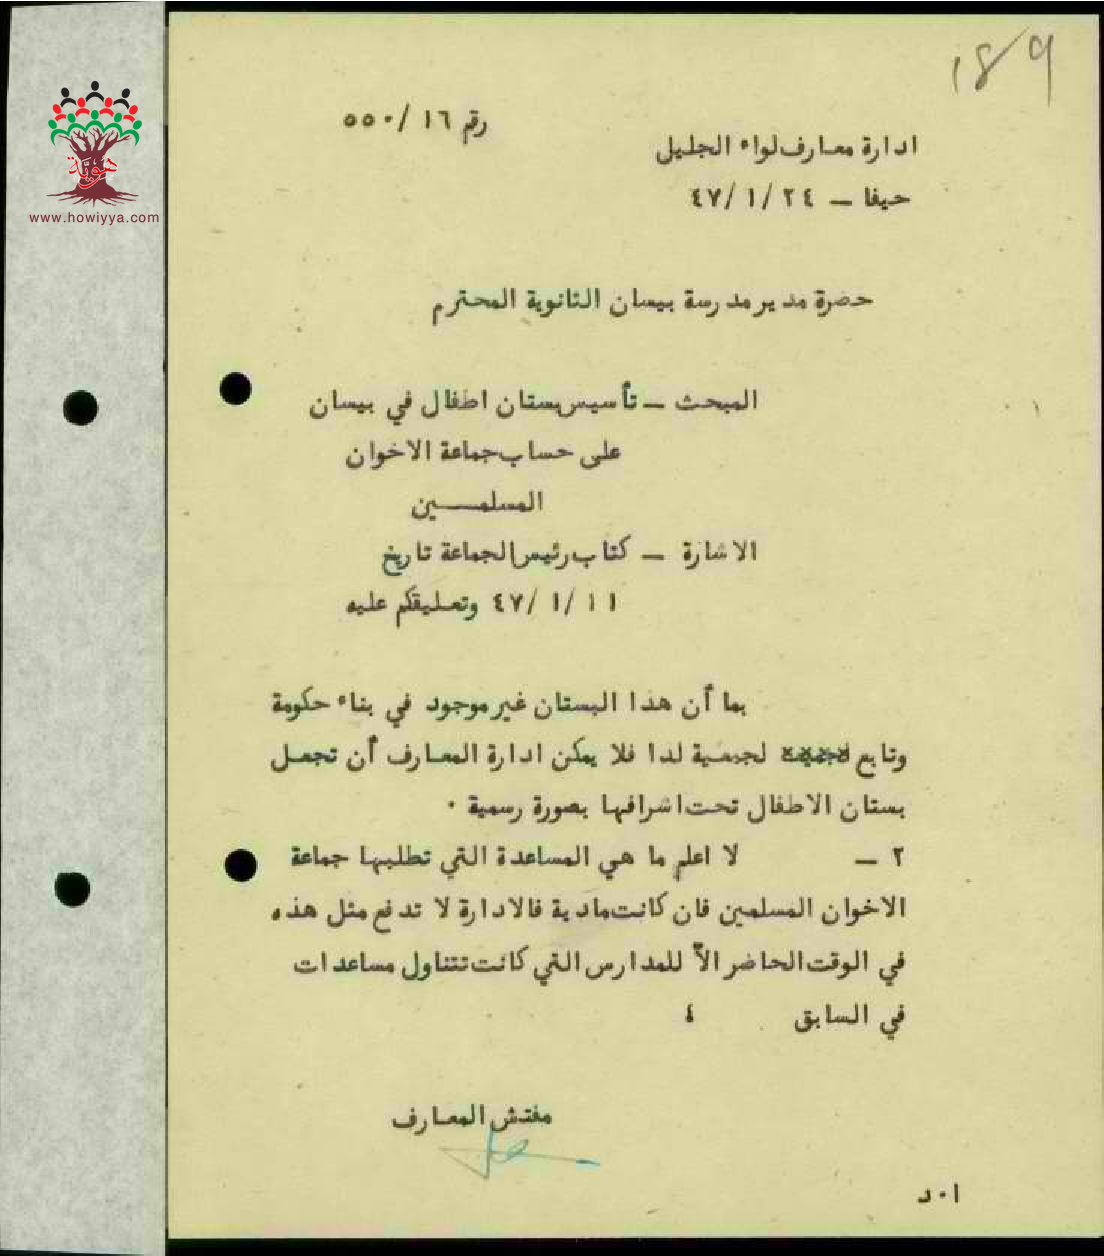 189
هوية
www.howiyya.com
رقم ١٦ /٥٥٠
ادارة معارف لواء الجليل
حيفا – ٢٤ /١ /٤٧
حضرة مدير مدرسة بيسان الثانوية المحترم
المبحث – تأسيس بستان اطفال في بيسان
على حساب جماعة الاخوان
المسلمــــين
الاشارة – كتاب رئيس الجماعة تاريخ
١١ /١ /٤٧ وتعليقكم عليه
بما أن هذا البستان غير موجود في بناء حكومة
وتابع لجمعية لذا فلا يمكن ادارة المعارف أن تجعل
بستان الاطفال تحت اشرافها بصورة رسمية ٠
٢ – لا اعلم ما هي المساعدة التي تطلبها جماعة
الاخوان المسلمين فان كانت مادية فالادارة لا تدفع مثل هذه
في الوقت الحاضر الاّ للمدارس التي كانت تتناول مساعدات
في السابق ٤
مفتش المعارف
ا٠د